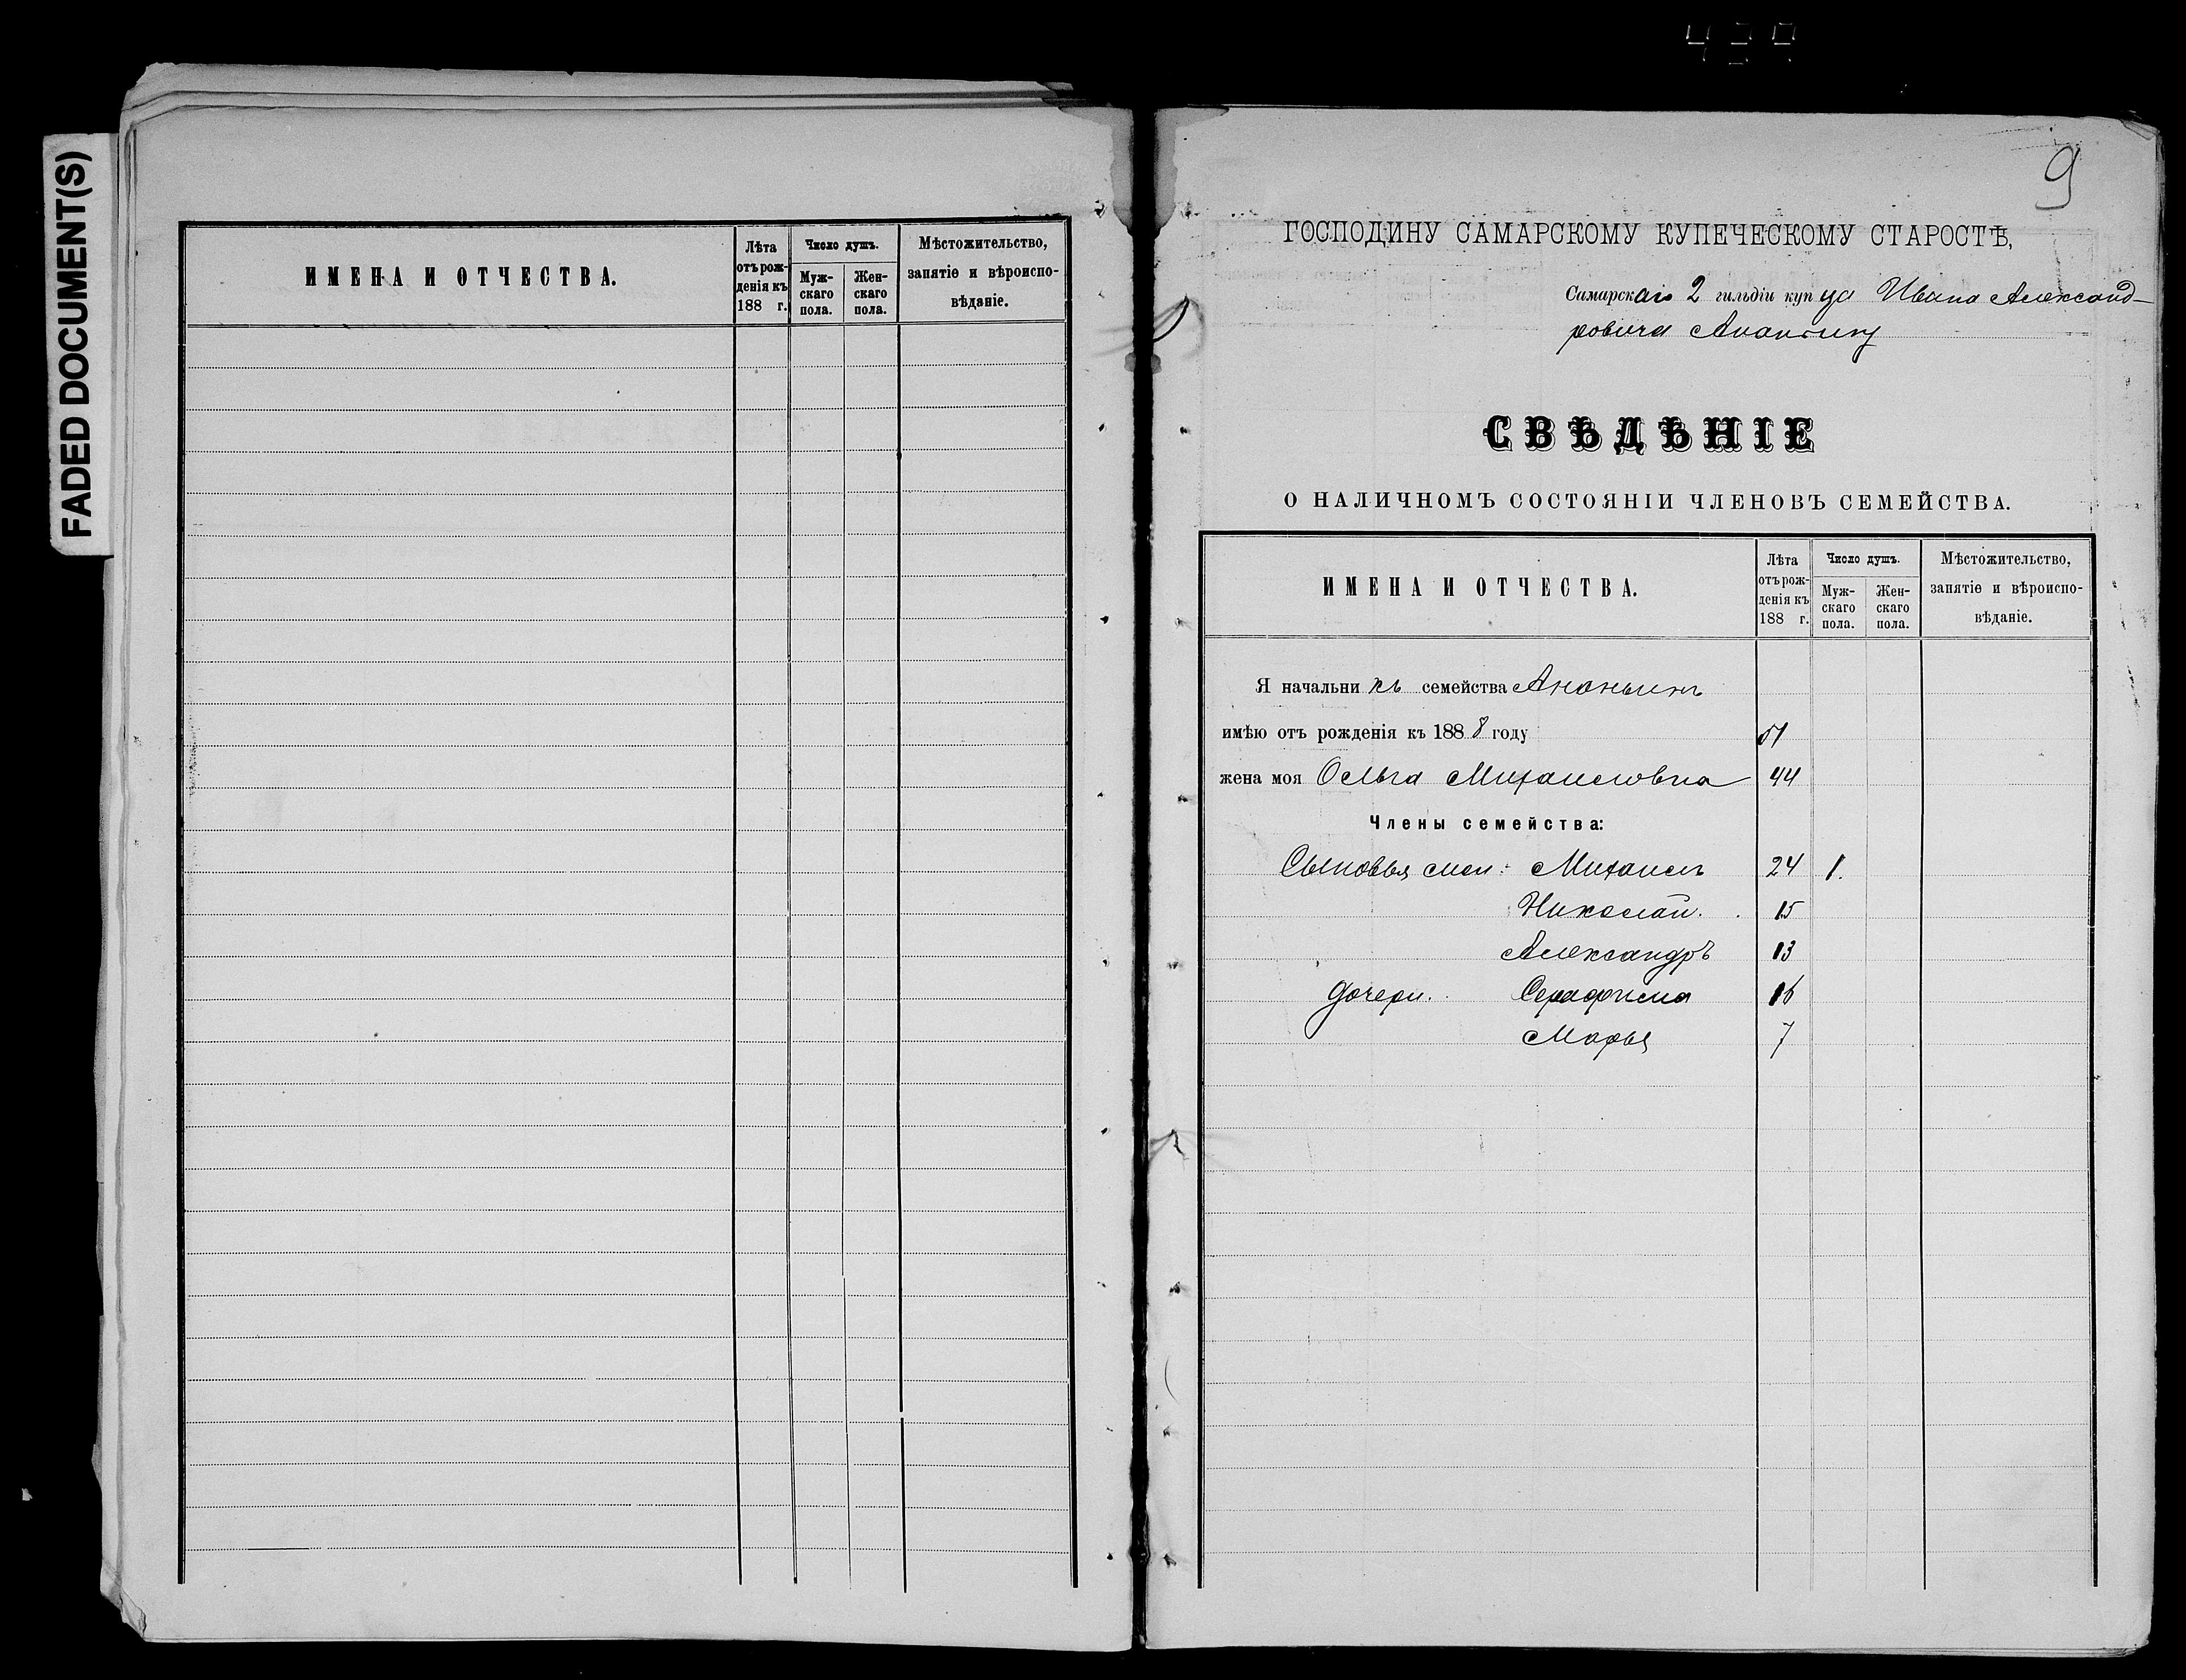 439
FADED DOCUMENT(S)
ИМЕНА И ОТЧЕСТВА.
Лѣта отъ рожденія къ 188 г.
Число душъ.
Мужскаго пола.
Женскаго пола.
Мѣстожительство, занятіе и вѣроисповѣданіе.
9
ГОСПОДИНУ САМАРСКОМУ КУПЕЧЕСКОМУ СТАРОСТѢ,
Самарскаго 2 гильдіи купца Ивана Александ-
ровича Ананьина
СВѢДѢНІЕ
О НАЛИЧНОМЪ СОСТОЯНІИ ЧЛЕНОВЪ СЕМЕЙСТВА.
ИМЕНА И ОТЧЕСТВА.
Лѣта отъ рожденія къ 188 г.
Число душъ.
Мужскаго пола.
Женскаго пола.
Мѣстожительство, занятіе и вѣроисповѣданіе.
Я начальникъ семейства Ананьинъ
имѣю отъ рожденія къ 1888 году 51
жена моя Ольга Михаиловна 44
Члены семейства:
Сыновья мои: Михаилъ 24 1.
Николай. 15
Александръ 13
Дочери. Серафима 16
Марья 7